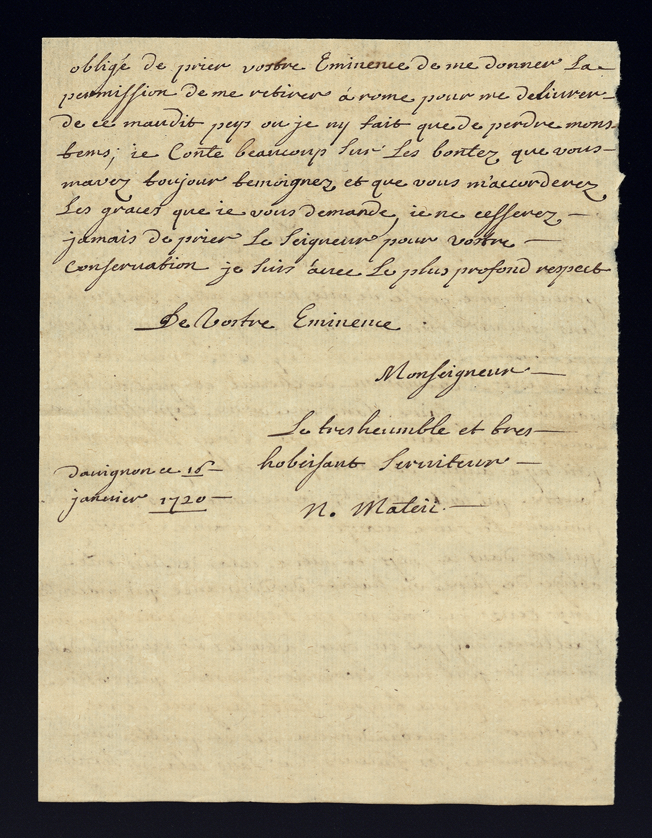 obligé de prier vostre Eminence de me donner La
permission de me retirer à rome pour me delivrer
de ce maudit peys ou je ny fait que de perdre mons
tems; ie Conte beaucoup sur Les bontez que vous
mavez toujour temoignez et que vous m'accorderez
Les graces que ie vous demande, ie ne cesserez
jamais de prier Le Seigneur pour vostre
Conservation je suis avec Le plus profond respect
De Vostre Eminence
Monseigneur
Le tres heumble et tres
hobeissant Serviteur
davignon ce 16
janvier 1720
N. Mateii